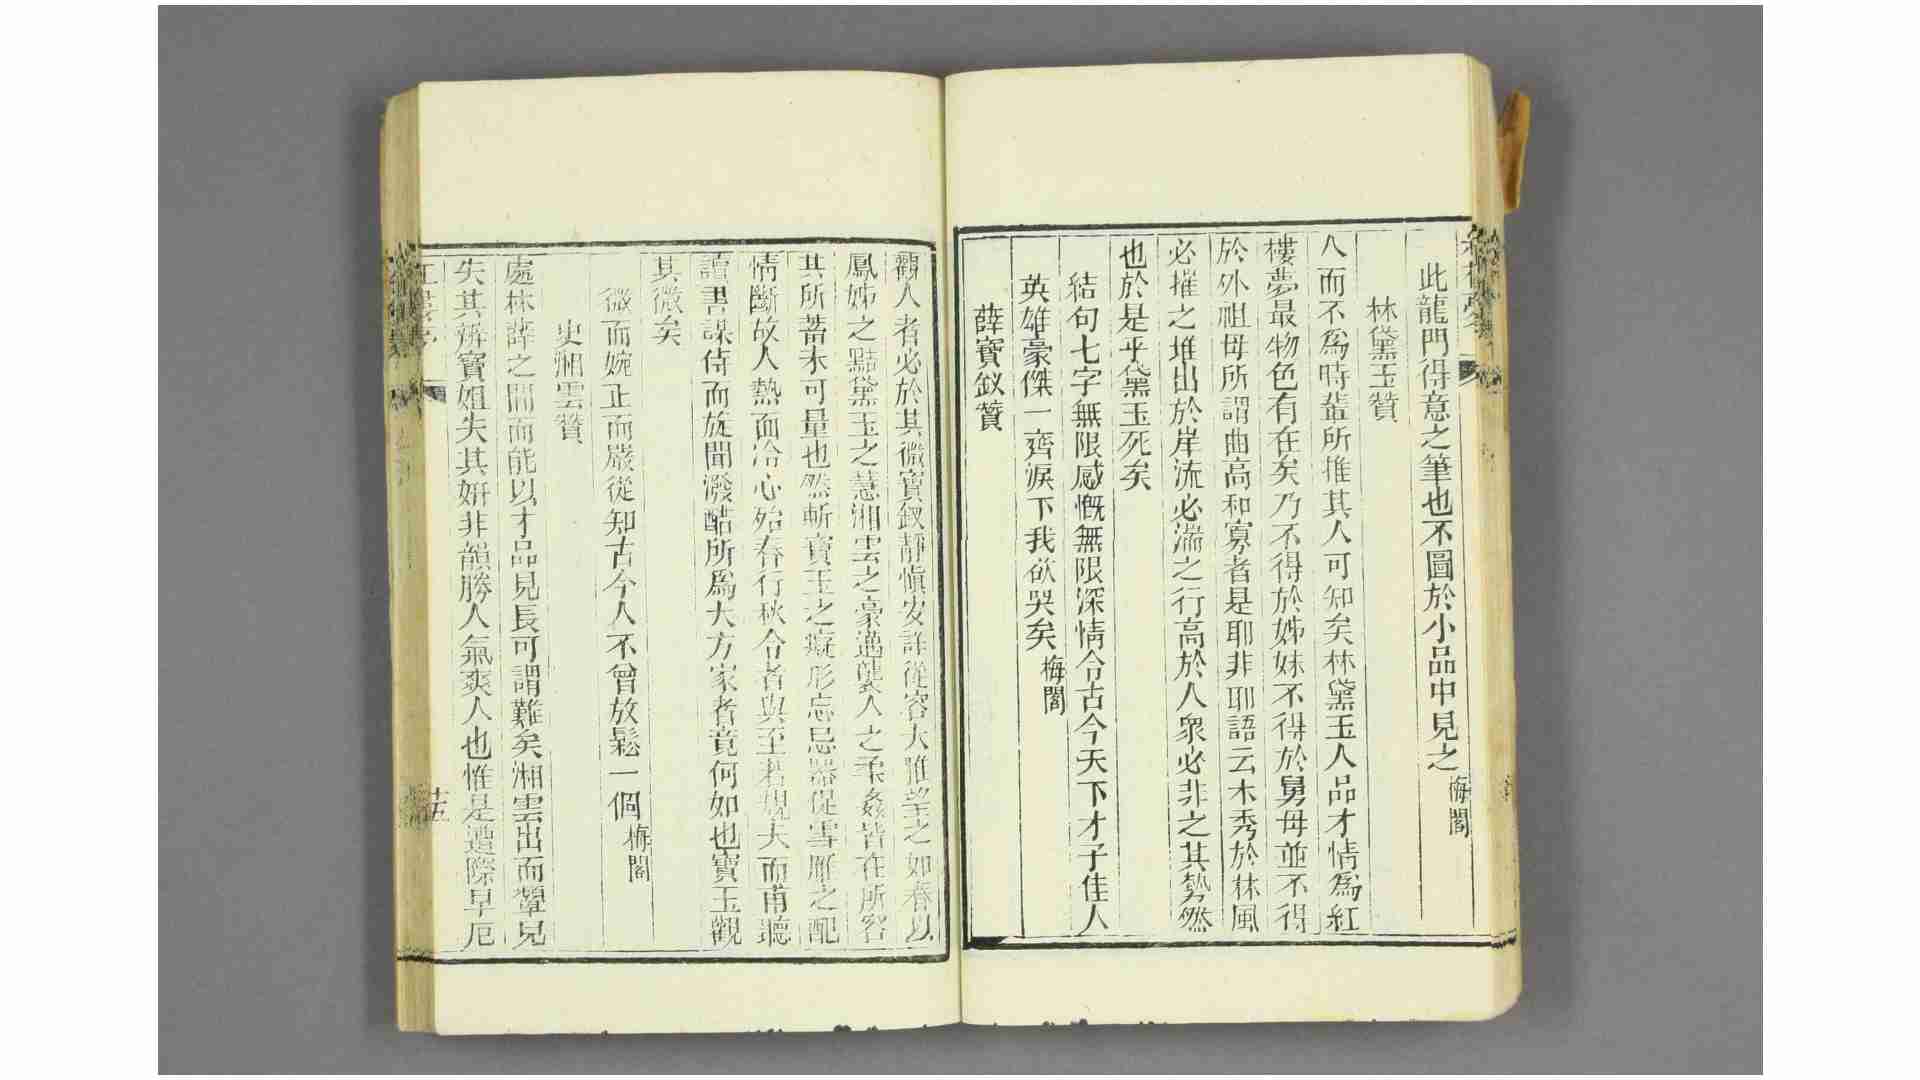 此龍門得意之筆也不圖於小品中見之梅閣
林黛玉贊
人而不為時輩所推其人可知矣林黛玉人品才情為紅
樓夢最物色有在矣乃不得於姊妹不得於舅母並不得
於外祖母所謂曲高和寡者是耶非耶語云木秀於林風
必摧之堆出於岸流必湍之行高於人衆必非之其勢然
也於是乎黛玉死矣
結句七字無限感慨無限深情令古今天下才子佳人
英雄豪傑一齊淚下我欲哭矣梅閣
薛寶釵贊
觀人者必於其微寶釵靜愼安詳從容大雅望之如春以
鳳姊之黠黛玉之慧湘雲之豪邁襲人之柔姦皆在所容
其所蓄未可量也然斬寶玉之癡形忘忌器促雪雁之配
情斷故人熱面冷心殆春行秋令者與至若規夫而甫聽
讀書謀侍而旋聞潑醋所為大方家者竟何如也寶玉觀
其微矣
微而婉正而嚴從知古今人不曾放鬆一個梅閣
史湘雲贊
處林薛之間而能以才品見長可謂難矣湘雲出而顰兒
失其辨寶姐失其妍非韻勝人氣爽人也惟是遭際早厄
十五